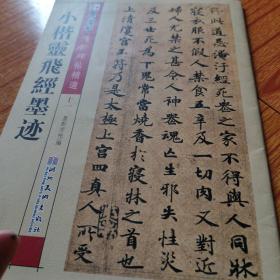 行此道忌淹汙經死喪之家不得與人同牀
寢衣服不假人禁食五辛及一切肉又對近
婦人尤禁之甚令人神喪魂亡生邪失性災
及三世死為下鬼常當燒香於寢牀之首也
上清瓊宮玉符乃是太極上宮四真人所受
碑帖精選
小楷靈飛經墨迹
美術出版社